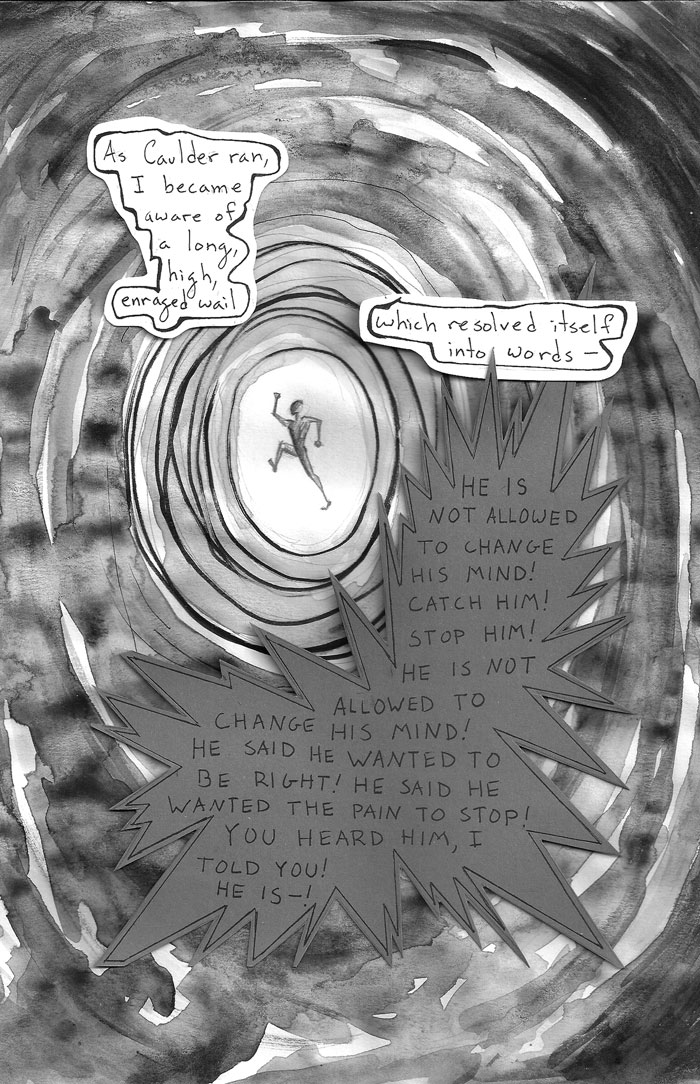 As Caulder ran,
I became
aware of
a long,
high,
enraged wail
which resolved itself
into words —
HE IS
NOT ALLOWED
TO CHANGE
HIS MIND!
CATCH HIM!
STOP HIM!
HE IS NOT
ALLOWED TO
CHANGE HIS MIND!
HE SAID HE WANTED TO
BE RIGHT! HE SAID HE
WANTED THE PAIN TO STOP!
YOU HEARD HIM, I
TOLD YOU!
HE IS—!